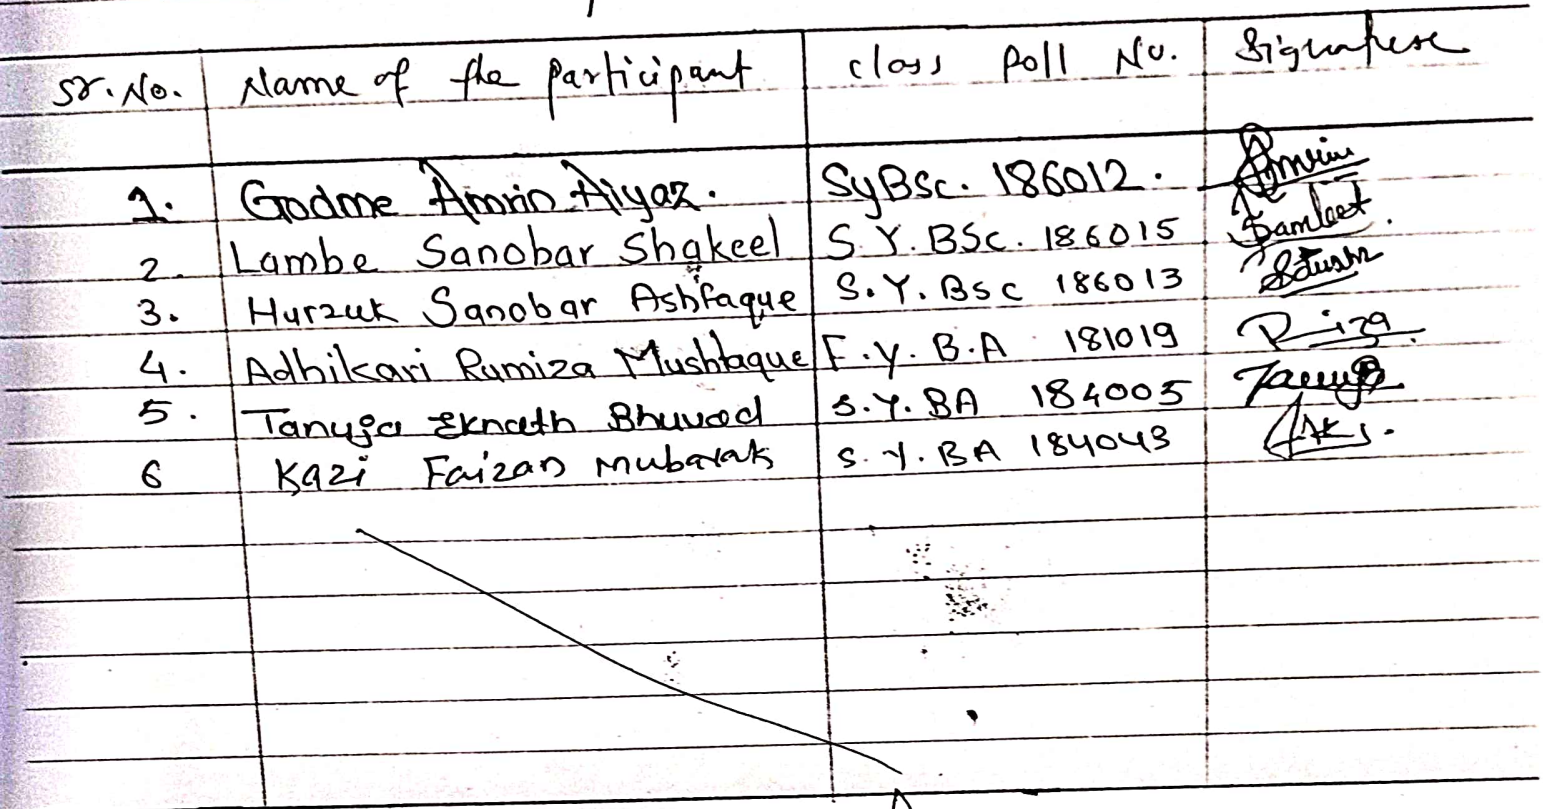 Sr. No. Name of the participant class Roll No. Signature
1. Godme Amrin Aiyaz. SyBSc. 186012. Amrin
2. Lambe Sanobar Shakeel S.Y.BSc. 186015
3. Hurzuk Sanobar Ashfaque S.Y.BSc 186013
4. Adhikari Rumiza Mushtaque F.y.B.A 181019 Riza
5. Tanuja Eknath Bhuvad S.Y.BA 184005 Tanuja
6 Kazi Faizan Mubarak S.Y.BA 184043